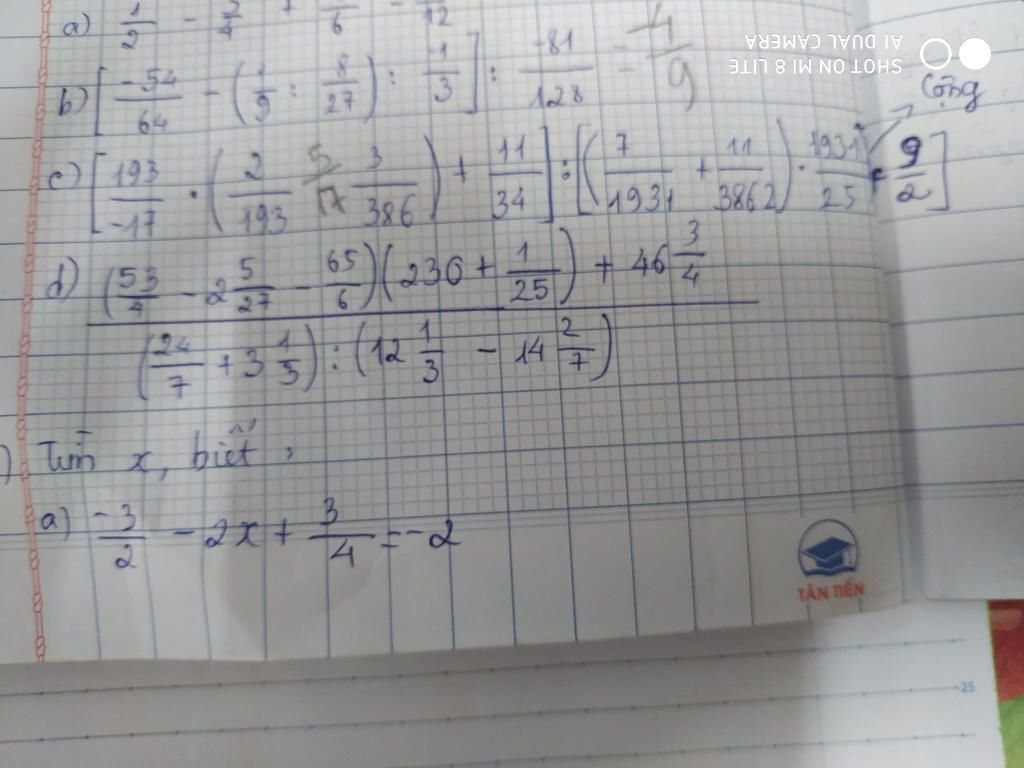 a) 1/2 - /4 + /6 - /12
b) [-54/64 - (1/9 : 8/27) : -1/3] : -81/128 -4/9
c) [193/-17 · (2/193 3/386) + 11/34] : [(7/1931 + 11/3862) · 1931/25 + 9/2]
5/17
Cộng
d) (53/4 - 2 5/27 - 65/6)(230 + 1/25) + 46 3/4
(24/7 + 3 1/3) : (12 1/3 - 14 2/7)
) Tìm x, biết :
a) -3/2 - 2x + 3/4 = -2
TÂN TIẾN
25
SHOT ON MI 8 LITE
AI DUAL CAMERA